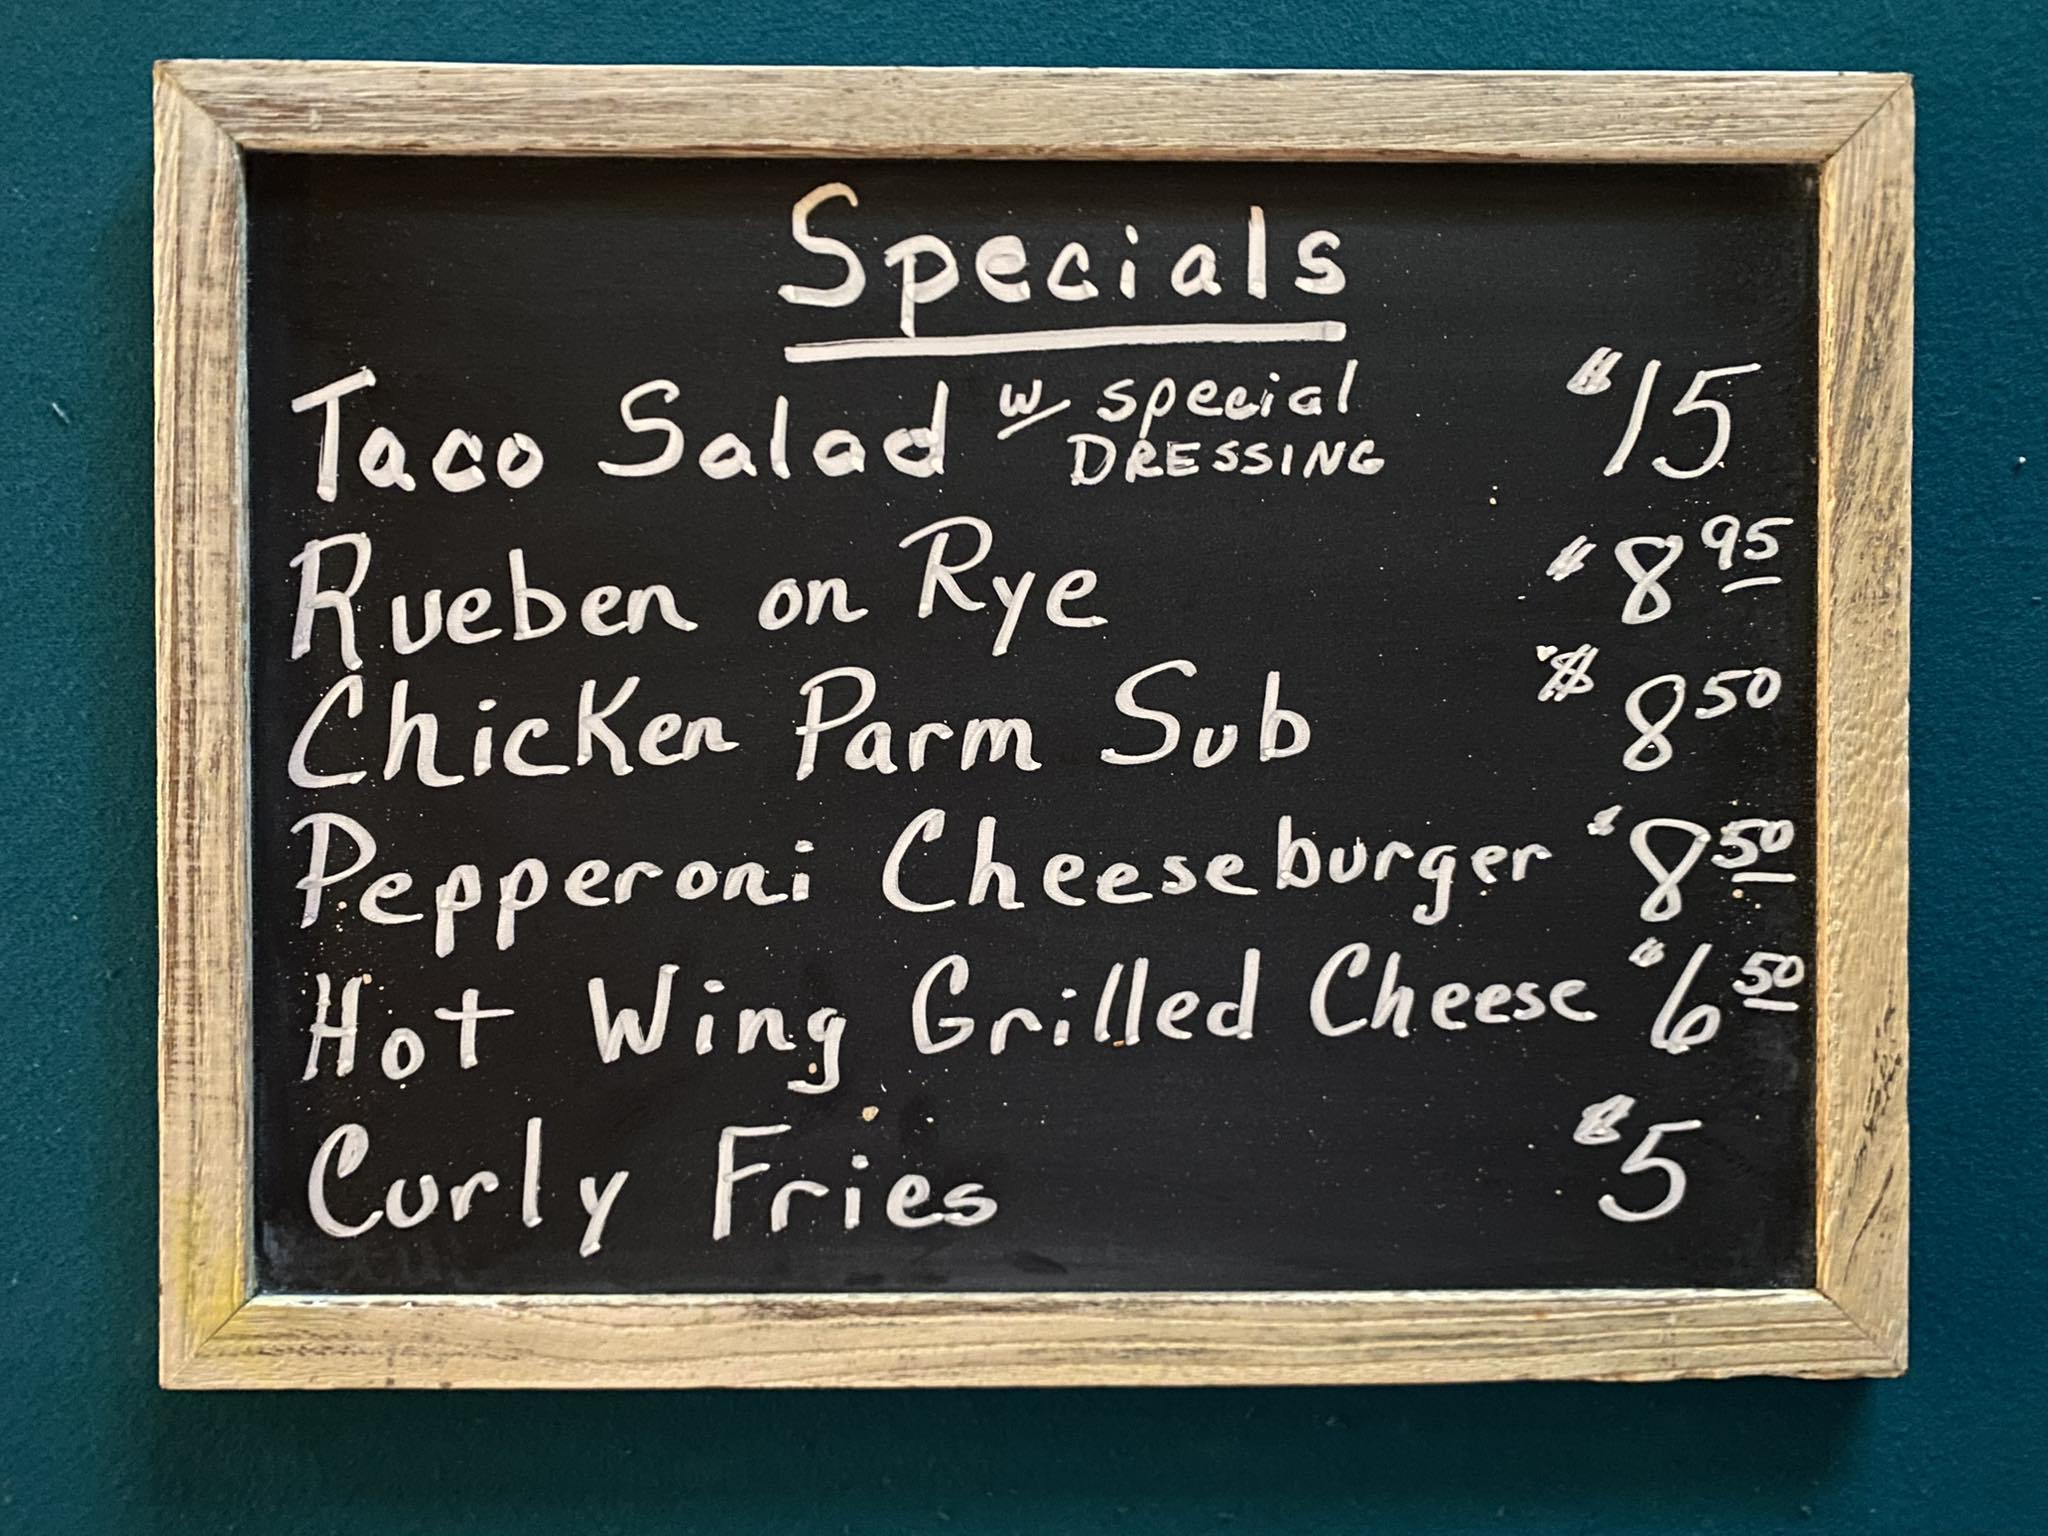 Specials
Taco Salad w/ special DRESSING $15
Rueben on Rye $8.95
Chicken Parm Sub $8.50
Pepperoni Cheeseburger $8.50
Hot Wing Grilled Cheese $6.50
Curly Fries $5